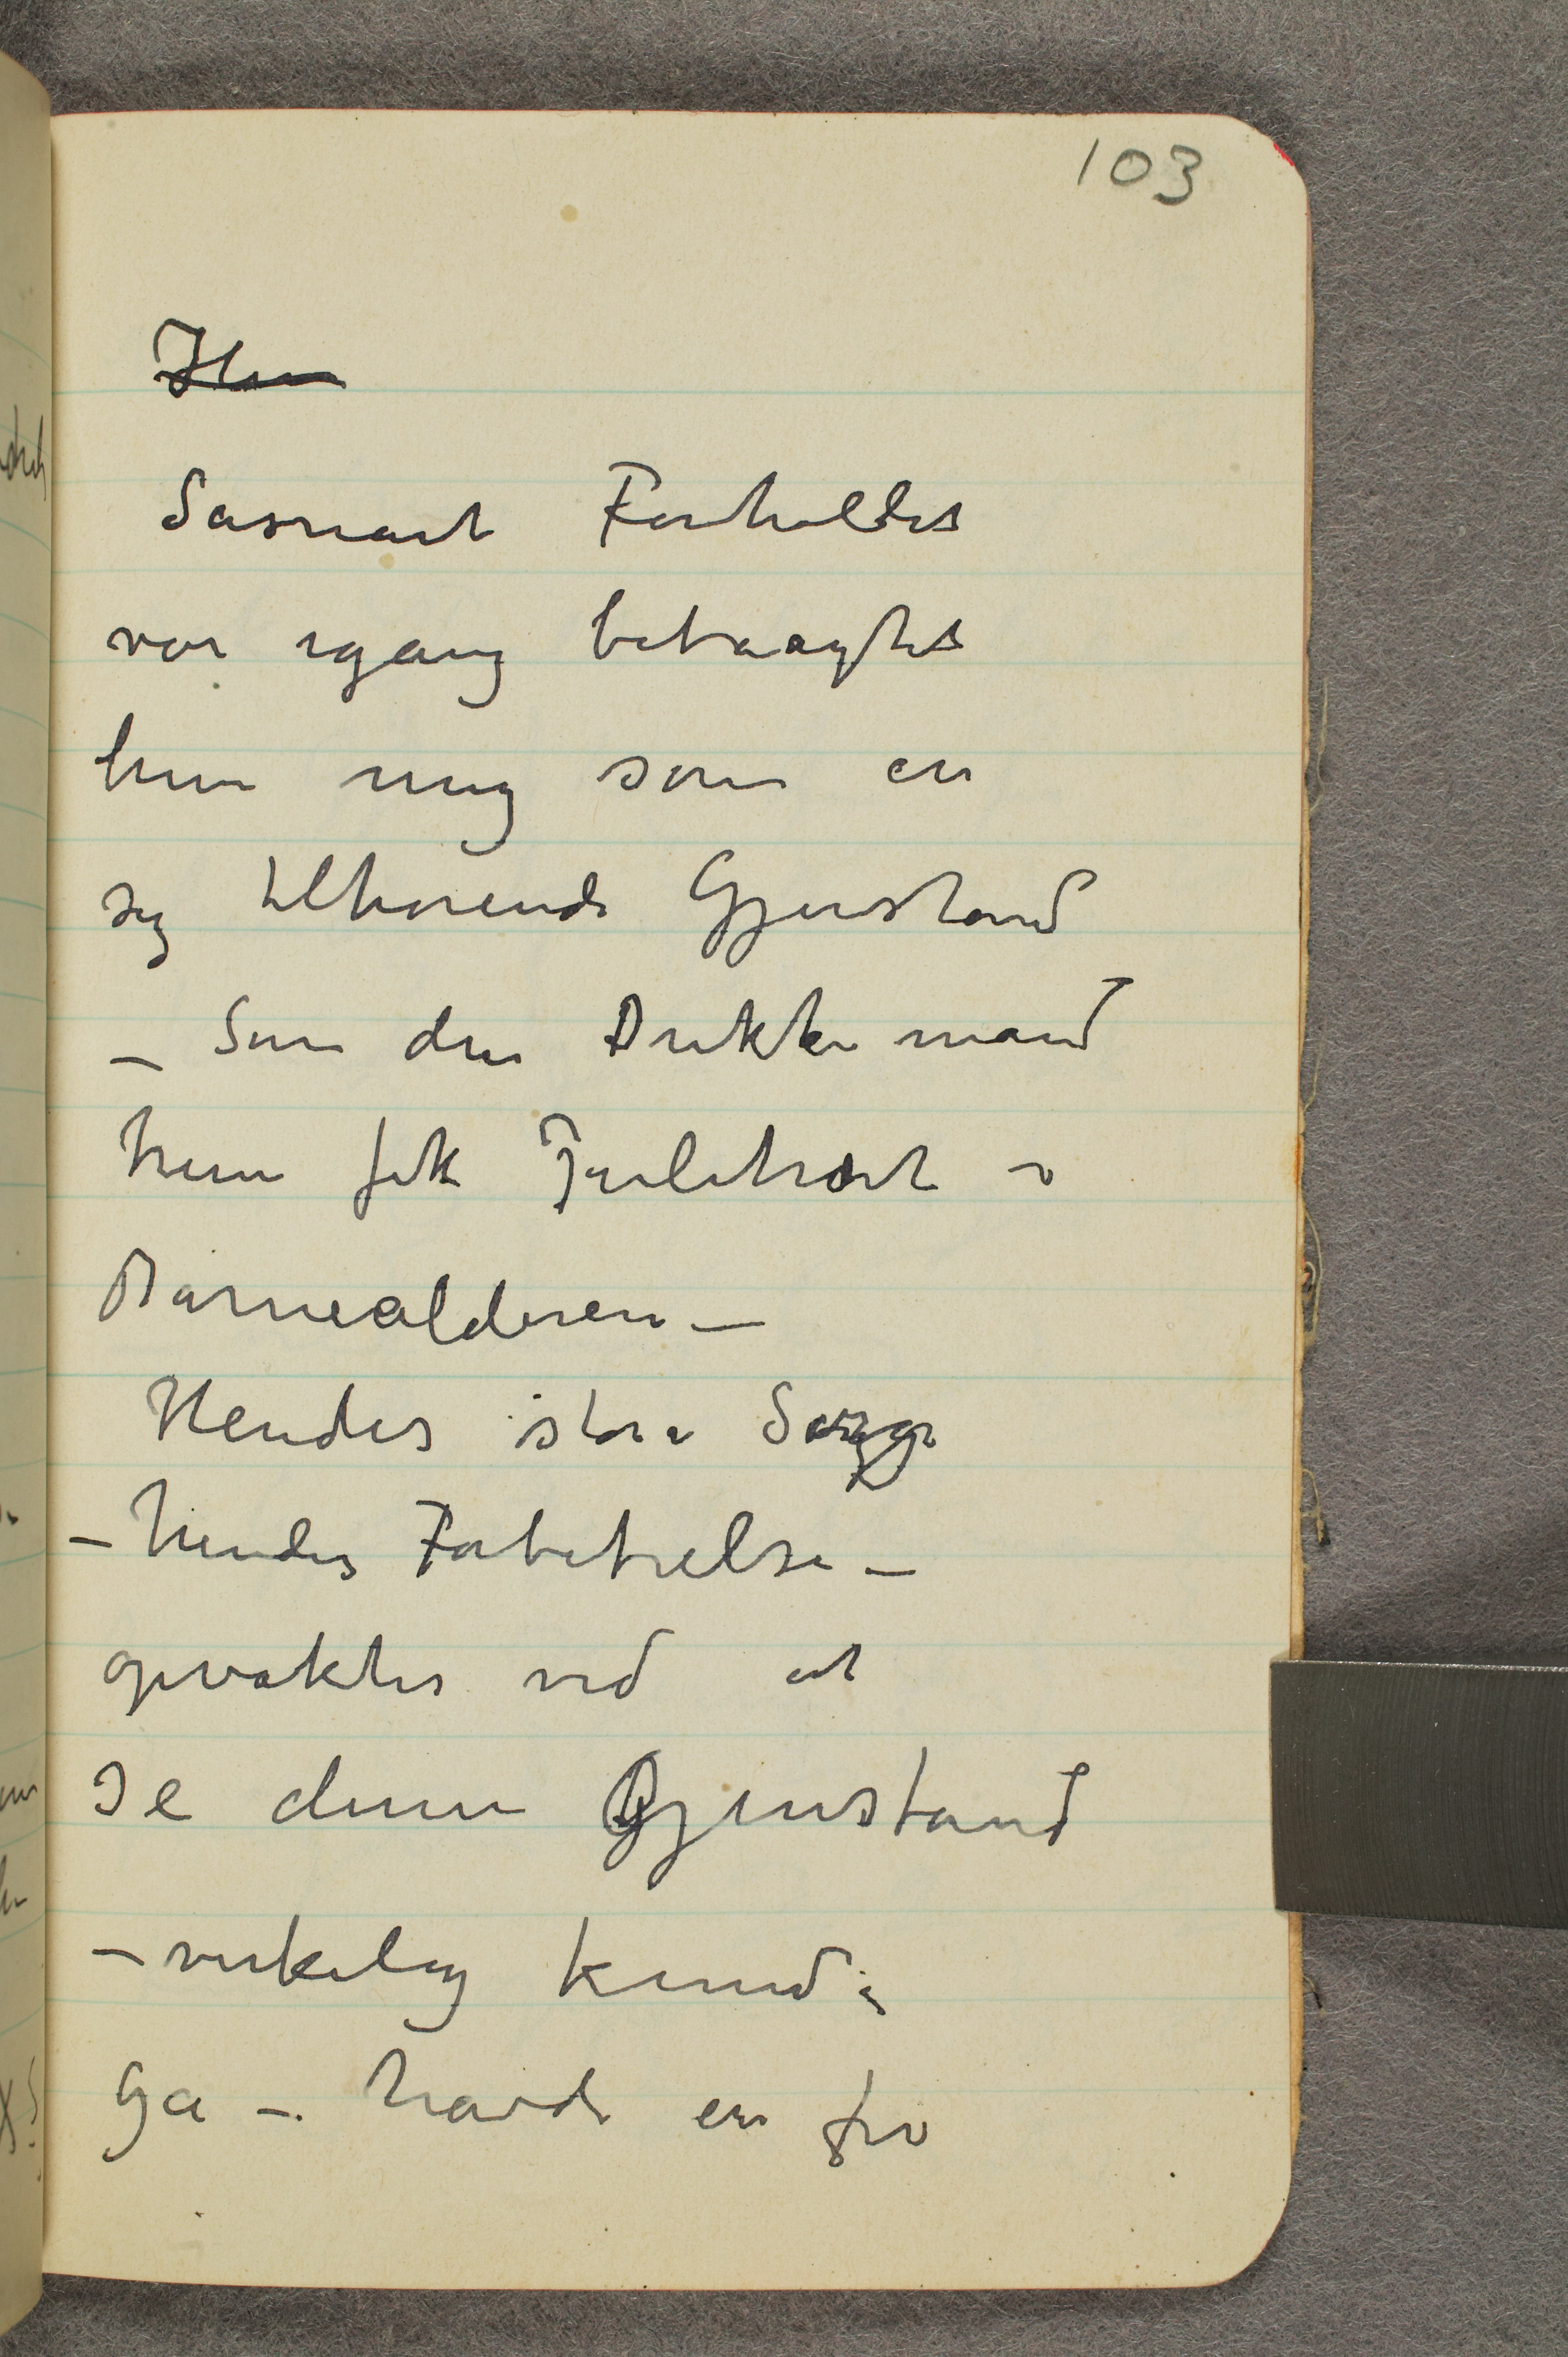 103
Hun
Såsnart Forholdet
var igang betragtet
hun mig som en
sig tilhørende Gjenstand
– Som den Dukkemand
hun fik Juletræet i
Barnealderen –
Hendes store Sorg
– hendes Forbitrelse –
opvaktes ved at
se denne Gjenstand
– virkelig kunde
Gå – havde en fri